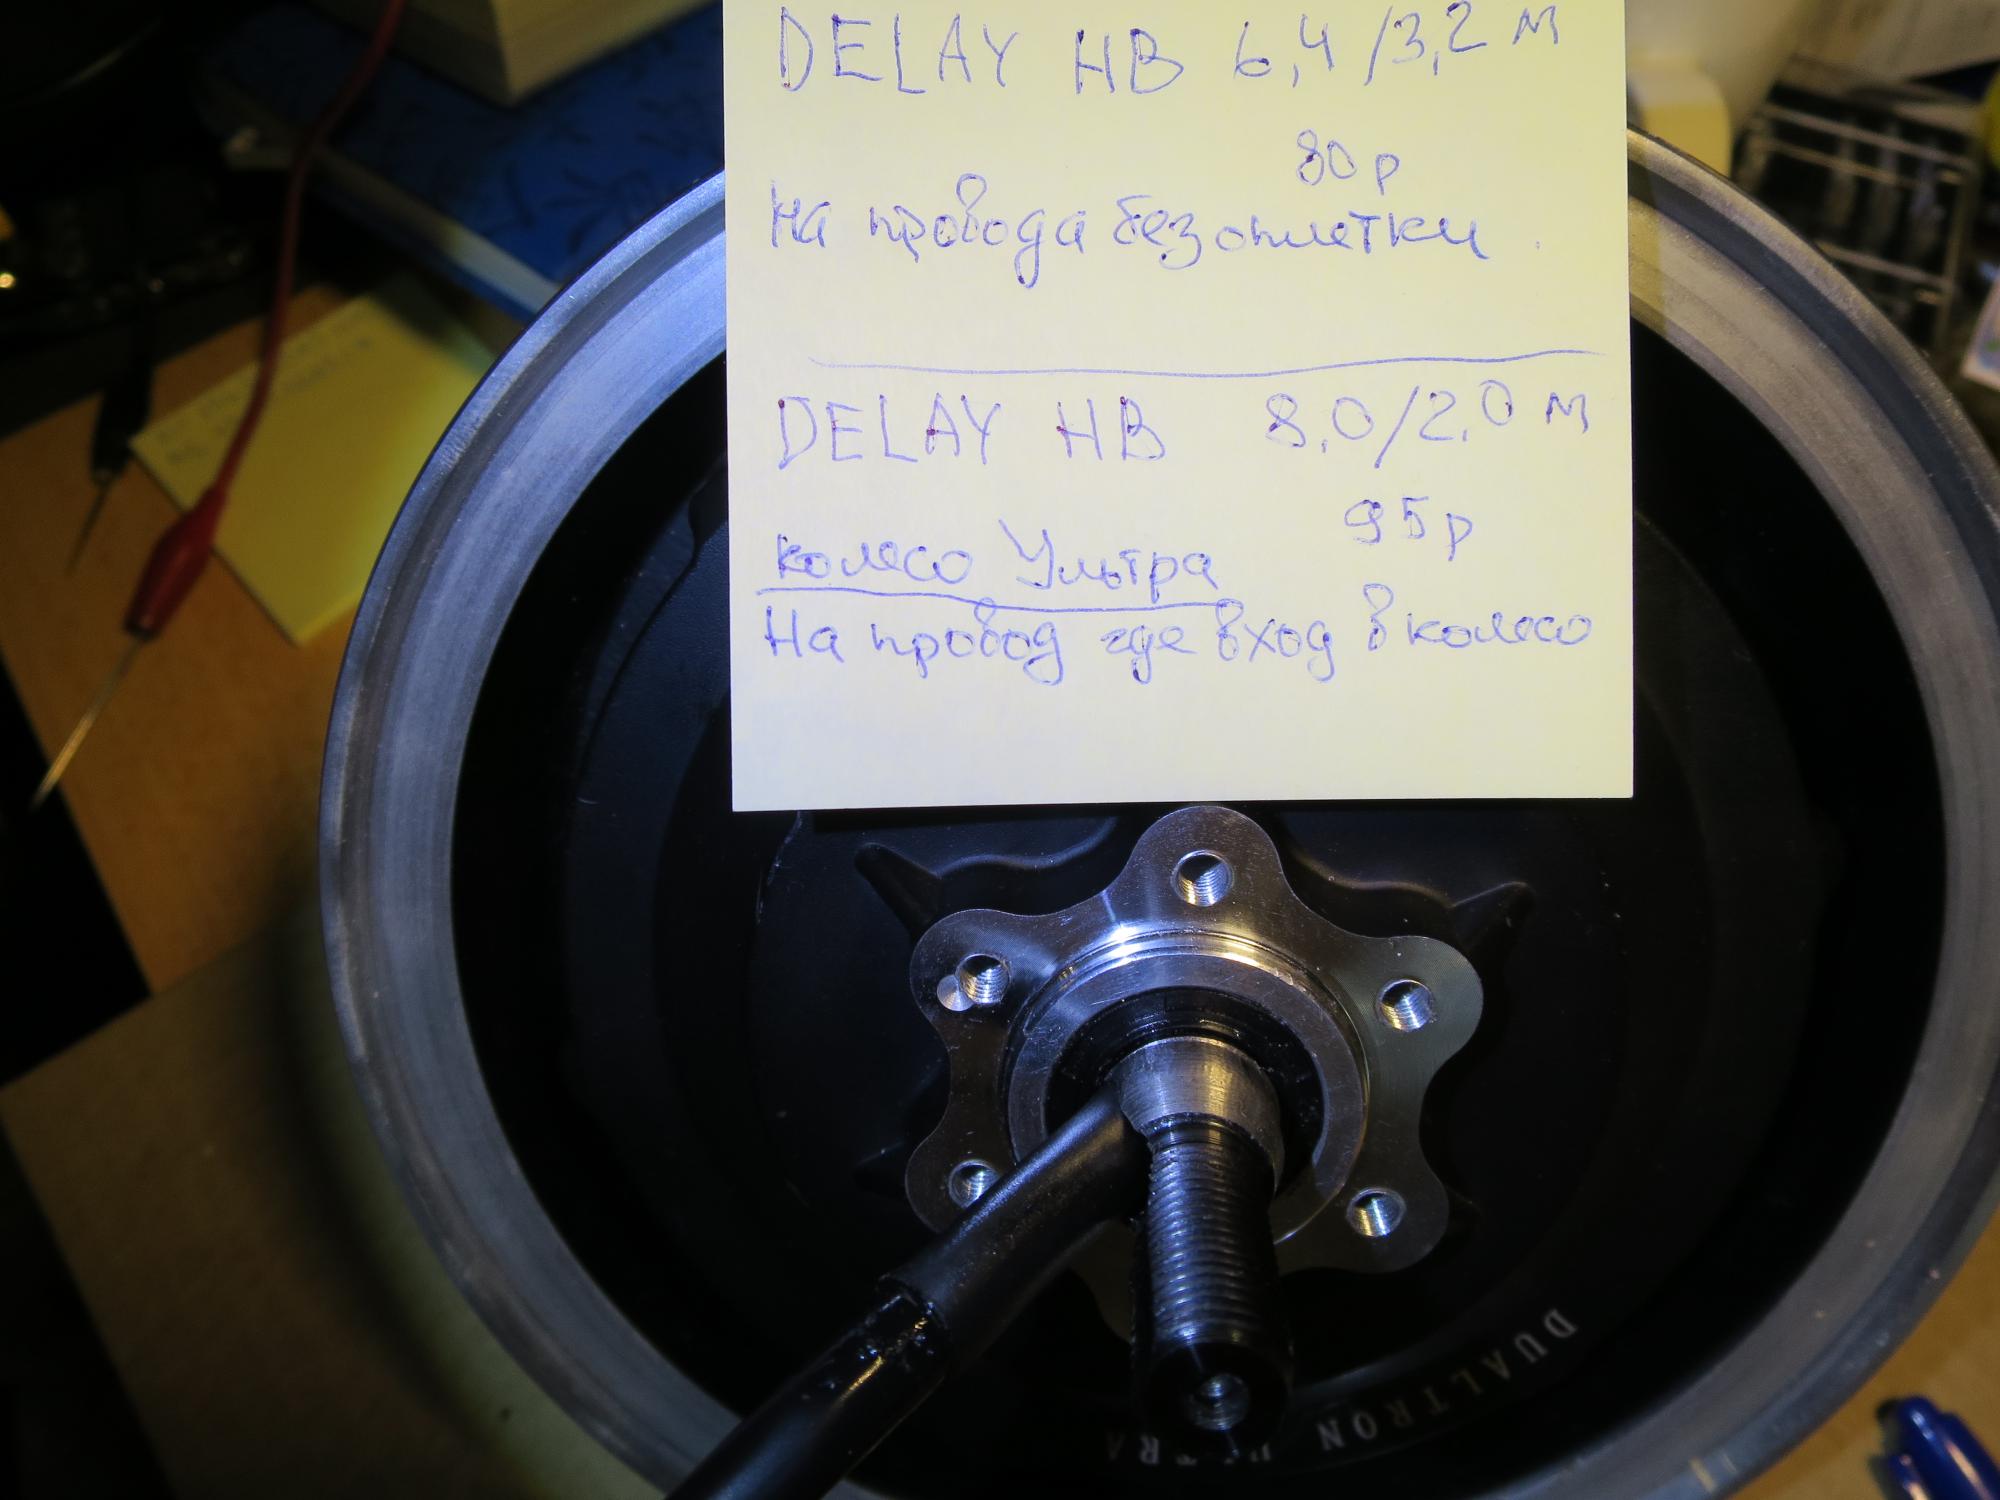 DELAY НВ 6,4/3,2 м
80р
На провода без оплетки.
DELAY НВ 8,0/2,0 м
95р
колесо Ультра
На провод где вход в колесо
DUALTRON ULTRA